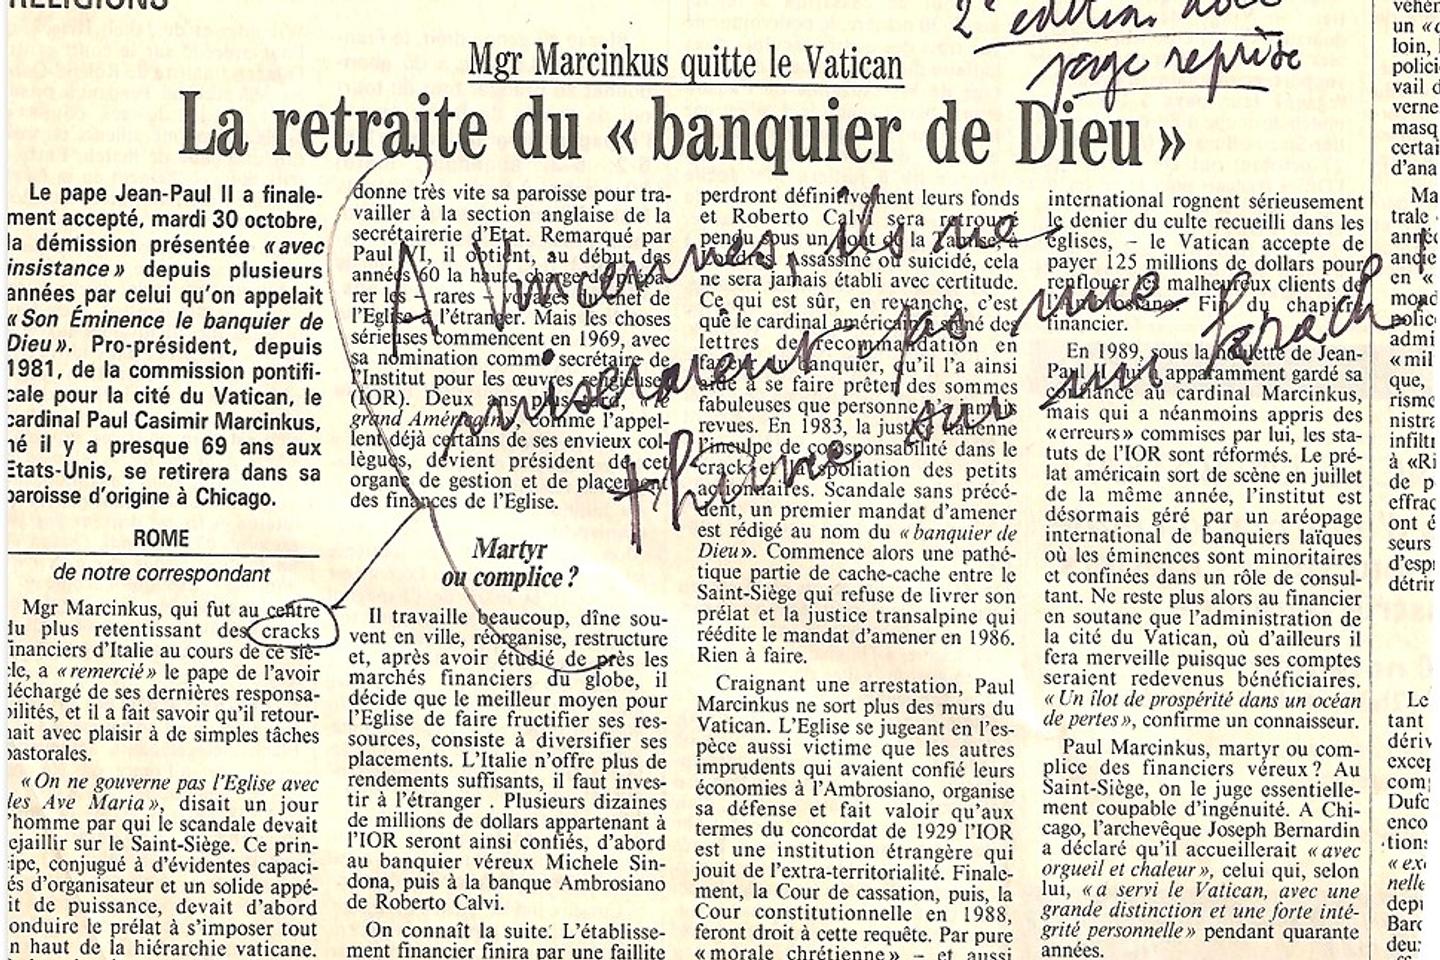 RELIGIONS
2e édition
page reprise
Mgr Marcinkus quitte le Vatican
La retraite du « banquier de Dieu »
Le pape Jean-Paul II a finale-
ment accepté, mardi 30 octobre,
la démission présentée « avec
insistance » depuis plusieurs
années par celui qu'on appelait
« Son Éminence le banquier de
Dieu ». Pro-président, depuis
1981, de la commission pontifi-
cale pour la cité du Vatican, le
cardinal Paul Casimir Marcinkus,
né il y a presque 69 ans aux
Etats-Unis, se retirera dans sa
paroisse d'origine à Chicago.
ROME
de notre correspondant
Mgr Marcinkus, qui fut au centre
du plus retentissant des cracks
financiers d'Italie au cours de ce siè-
cle, a « remercié » le pape de l'avoir
déchargé de ses dernières responsa-
bilités, et il a fait savoir qu'il retour-
nait avec plaisir à de simples tâches
pastorales.
« On ne gouverne pas l'Eglise avec
les Ave Maria », disait un jour
l'homme par qui le scandale devait
rejaillir sur le Saint-Siège. Ce prin-
cipe, conjugué à d'évidentes capaci-
tés d'organisateur et un solide appé-
tit de puissance, devait d'abord
conduire le prélat à s'imposer tout
en haut de la hiérarchie vaticane.
donne très vite sa paroisse pour tra-
vailler à la section anglaise de la
secrétairerie d'Etat. Remarqué par
Paul VI, il obtient, au début des
années 60 la haute charge de prépa-
rer les – rares – voyages du chef de
l'Eglise à l'étranger. Mais les choses
sérieuses commencent en 1969, avec
sa nomination comme secrétaire de
l'Institut pour les œuvres religieuses
(IOR). Deux ans plus tard, « le
grand Américain », comme l'appel-
lent déjà certains de ses envieux col-
lègues, devient président de cet
organe de gestion et de placement
des finances de l'Eglise.
Martyr
ou complice ?
Il travaille beaucoup, dîne sou-
vent en ville, réorganise, restructure
et, après avoir étudié de près les
marchés financiers du globe, il
décide que le meilleur moyen pour
l'Eglise de faire fructifier ses res-
sources, consiste à diversifier ses
placements. L'Italie n'offre plus de
rendements suffisants, il faut inves-
tir à l'étranger . Plusieurs dizaines
de millions de dollars appartenant à
l'IOR seront ainsi confiés, d'abord
au banquier véreux Michele Sin-
dona, puis à la banque Ambrosiano
de Roberto Calvi.
On connaît la suite. L'établisse-
ment financier finira par une faillite
perdront définitivement leurs fonds
et Roberto Calvi sera retrouvé
pendu sous un pont de la Tamise, à
Londres. Assassiné ou suicidé, cela
ne sera jamais établi avec certitude.
Ce qui est sûr, en revanche, c'est
que le cardinal américain a signé des
lettres de recommandation en
faveur du banquier, qu'il l'a ainsi
aidé à se faire prêter des sommes
fabuleuses que personne n'a jamais
revues. En 1983, la justice italienne
l'inculpe de coresponsabilité dans le
crack et la spoliation des petits
actionnaires. Scandale sans précé-
dent, un premier mandat d'amener
est rédigé au nom du « banquier de
Dieu ». Commence alors une pathé-
tique partie de cache-cache entre le
Saint-Siège qui refuse de livrer son
prélat et la justice transalpine qui
réédite le mandat d'amener en 1986.
Rien à faire.
Craignant une arrestation, Paul
Marcinkus ne sort plus des murs du
Vatican. L'Eglise se jugeant en l'es-
pèce aussi victime que les autres
imprudents qui avaient confié leurs
économies à l'Ambrosiano, organise
sa défense et fait valoir qu'aux
termes du concordat de 1929 l'IOR
est une institution étrangère qui
jouit de l'extra-territorialité. Finale-
ment, la Cour de cassation, puis, la
Cour constitutionnelle en 1988,
feront droit à cette requête. Par pure
« morale chrétienne » – et aussi
international rognent sérieusement
le denier du culte recueilli dans les
églises, – le Vatican accepte de
payer 125 millions de dollars pour
renflouer les malheureux clients de
l'Ambrosiano. Fin du chapitre
financier.
En 1989, sous la houlette de Jean-
Paul II qui a apparamment gardé sa
confiance au cardinal Marcinkus,
mais qui a néanmoins appris des
« erreurs » commises par lui, les sta-
tuts de l'IOR sont réformés. Le pré-
lat américain sort de scène en juillet
de la même année, l'institut est
désormais géré par un aréopage
international de banquiers laïques
où les éminences sont minoritaires
et confinées dans un rôle de consul-
tant. Ne reste plus alors au financier
en soutane que l'administration de
la cité du Vatican, où d'ailleurs il
fera merveille puisque ses comptes
seraient redevenus bénéficiaires.
« Un îlot de prospérité dans un océan
de pertes », confirme un connaisseur.
Paul Marcinkus, martyr ou com-
plice des financiers véreux ? Au
Saint-Siège, on le juge essentielle-
ment coupable d'ingénuité. A Chi-
cago, l'archevêque Joseph Bernardin
a déclaré qu'il accueillerait « avec
orgueil et chaleur », celui qui, selon
lui, « a servi le Vatican, avec une
grande distinction et une forte inté-
grité personnelle » pendant quarante
années.
A Vincennes, ils ne
miseraient pas une
thune sur un krach